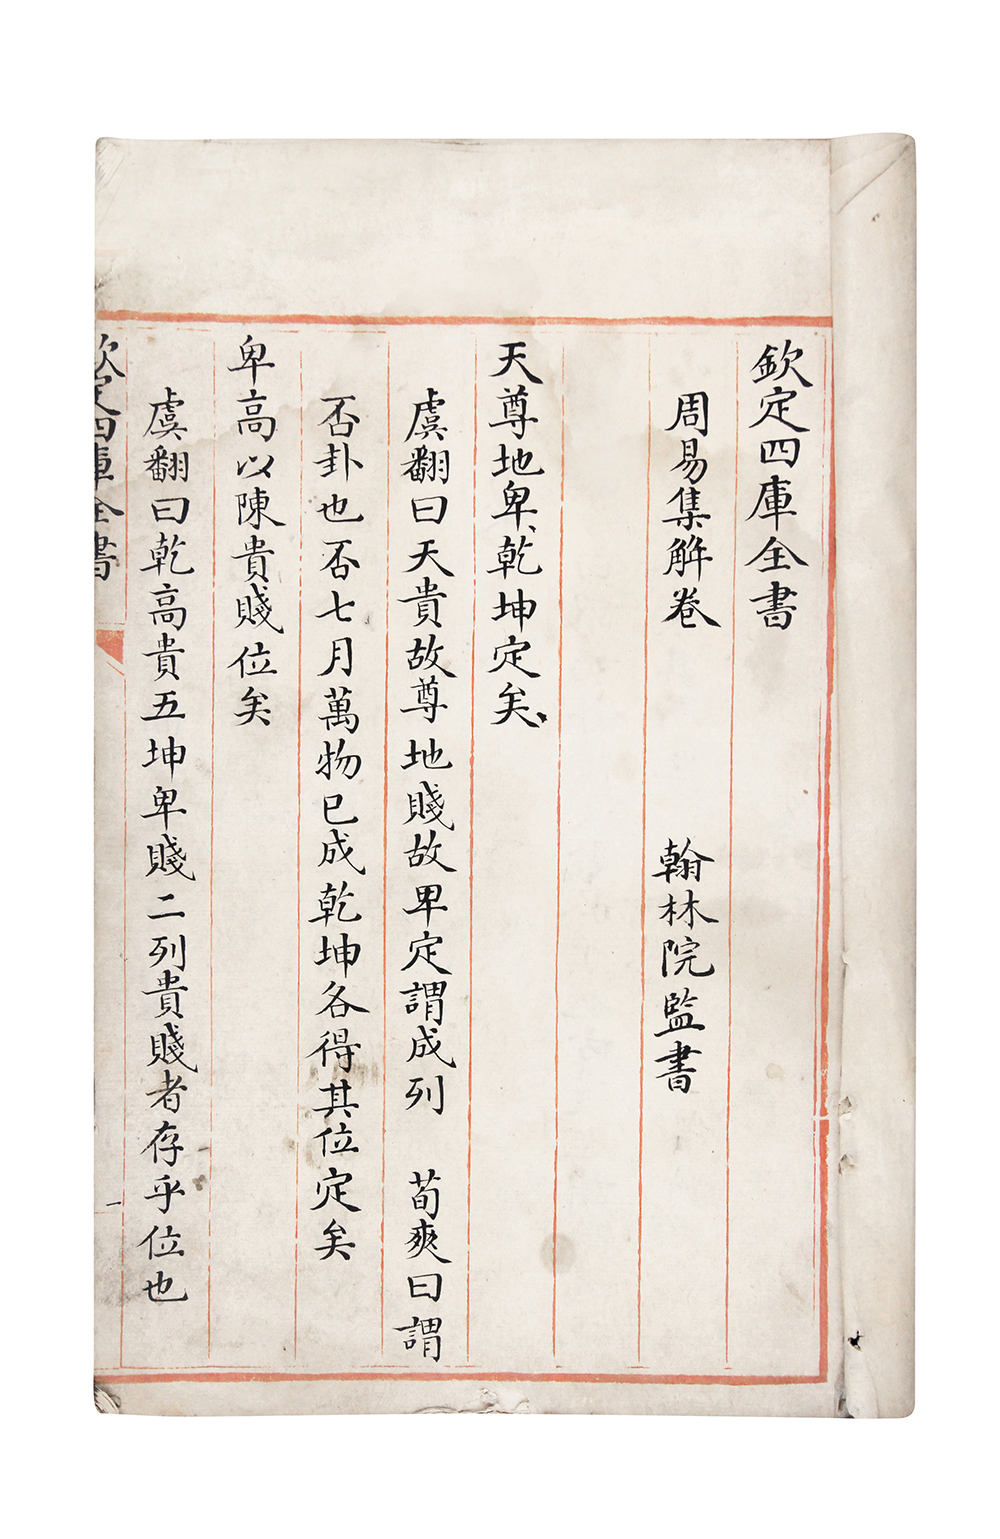 欽定四庫全書
周易集解卷 翰林院監書
天尊地卑、乾坤定矣、
虞翻曰天貴故尊地賤故卑定謂成列 荀爽曰謂
否卦也否七月萬物已成乾坤各得其位定矣
卑高以陳貴賤位矣
虞翻曰乾高貴五坤卑賤二列貴賤者存乎位也
欽定四庫全書
一